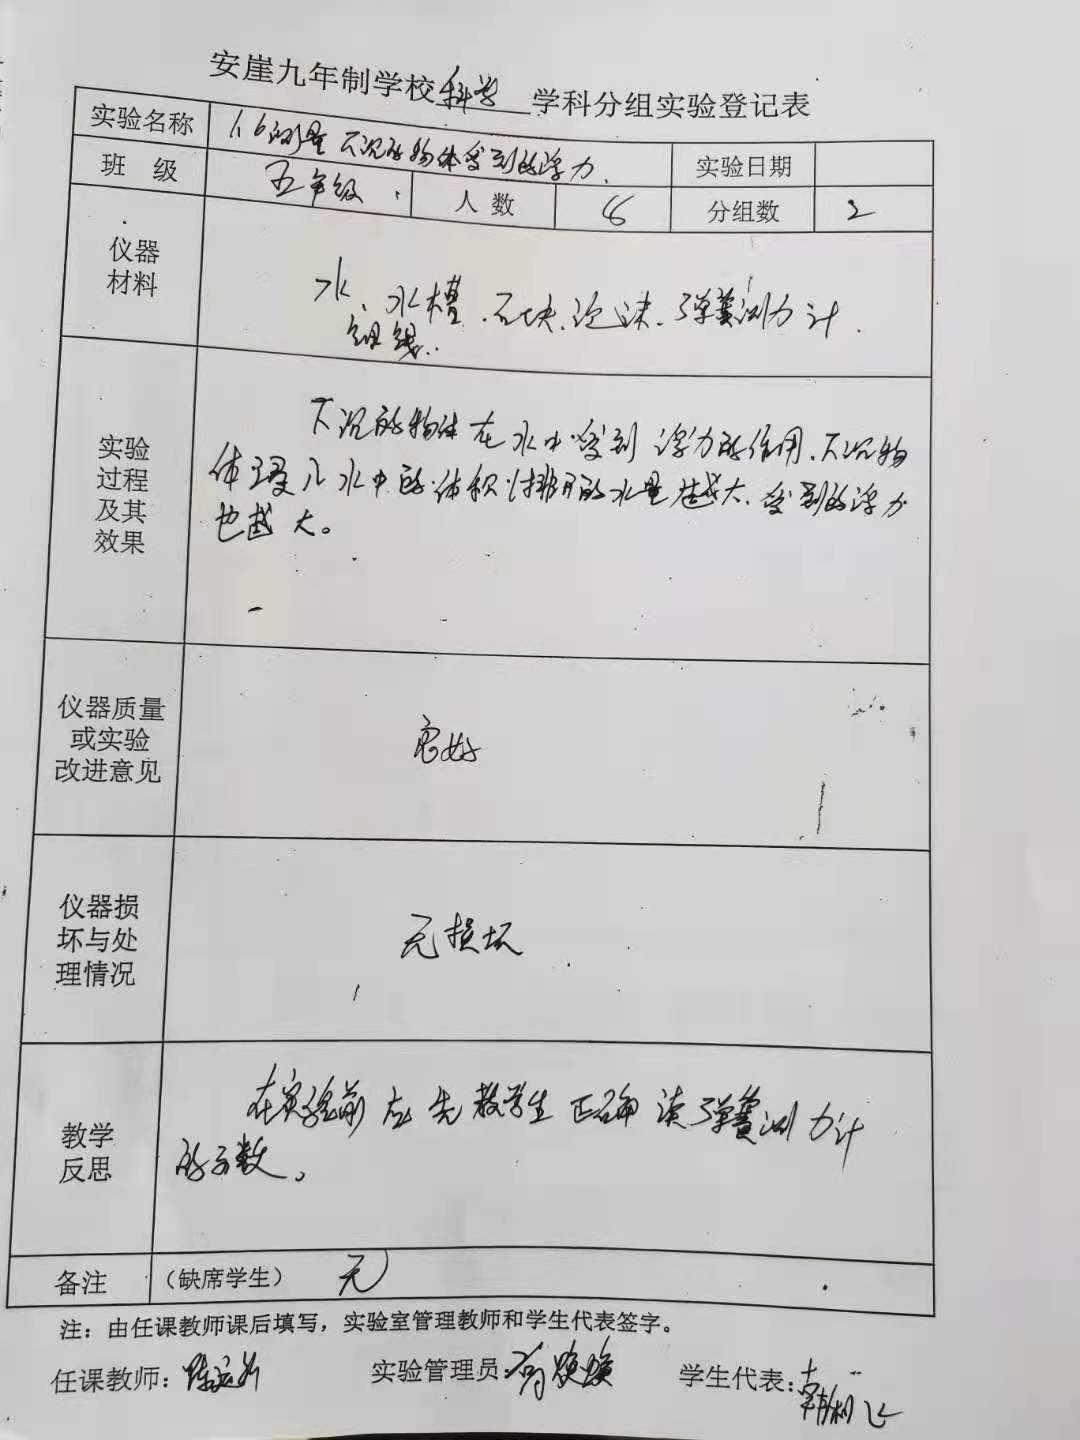 安崖九年制学校科学 学科分组实验登记表
实验名称 1.6测量下沉的物体受到的浮力. 实验日期
班 级 五年级. 人 数 6 分组数 2
仪器
材料
水、水槽.石块.泡沫.弹簧测力计.
细线..
实验
过程
及其
效果
下沉的物体在水中受到浮力的作用.下沉物
体浸入水中的体积(排开的水量)越大.受到的浮力
也越大。
仪器质量
或实验
改进意见
良好
仪器损
坏与处
理情况
无损坏
教学
反思
在实验前应先教学生正确读弹簧测力计
的示数。
备注 (缺席学生) 无
注：由任课教师课后填写，实验室管理教师和学生代表签字。
任课教师: 实验管理员: 学生代表: